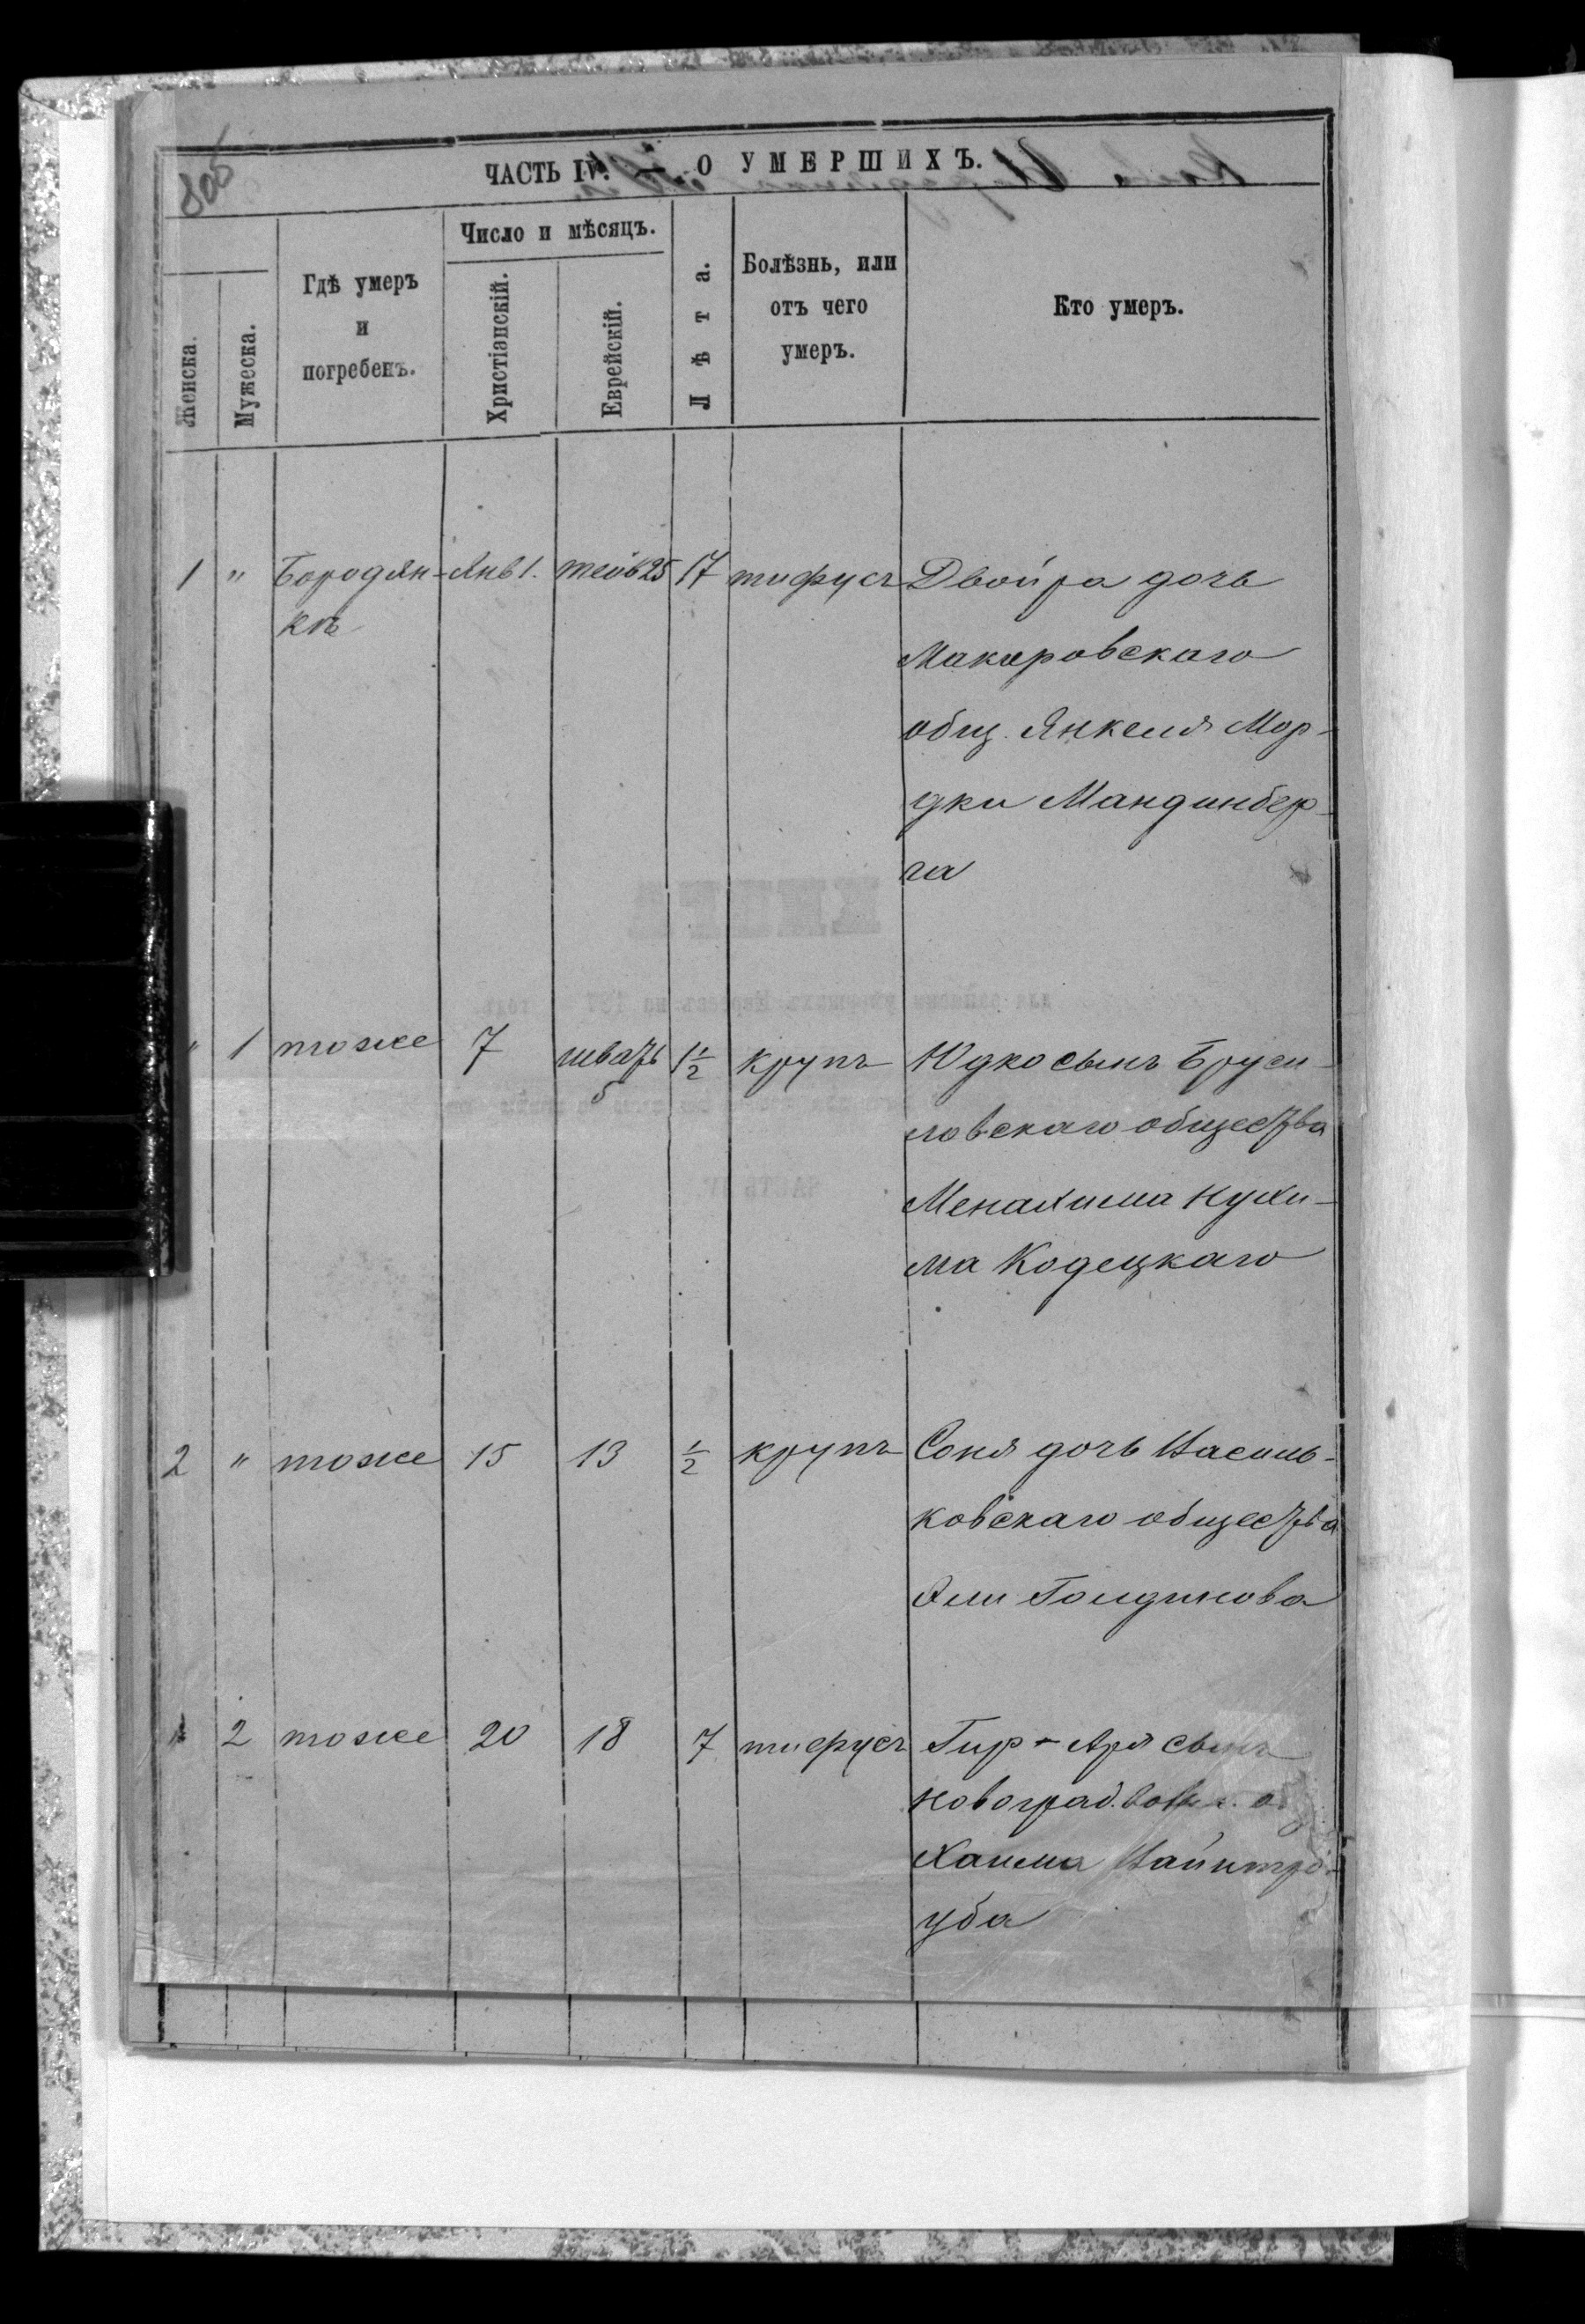 805
ЧАСТЬ IV. — О УМЕРШИХЪ.
Женска.
Мужеска.
Гдѣ умеръ
и
погребенъ.
Число и мѣсяцъ.
Христіанскій.
Еврейскій.
Лѣта.
Болѣзнь, или
отъ чего
умеръ.
Кто умеръ.
1 " Бородян- Янв 1. тейв 25 17 тифусъ Двойра дочь
кѣ
Макаровскаго
общ. Янкеля Мор-
дки Мандинбер-
га
" 1 тоже 7 шватъ 1½ крупъ Юдко сынъ Бруси-
5
ловскаго общества
Менахима Нухи-
ма Кодецкаго
2 " тоже 15 13 ½ крупъ Соня дочь Василь-
ковскаго общества
Эли Голдинова
" 2 тоже 20 18 7 тифусъ Гир-Аря сынъ
новоград.
Хаима Вайнтро-
уба